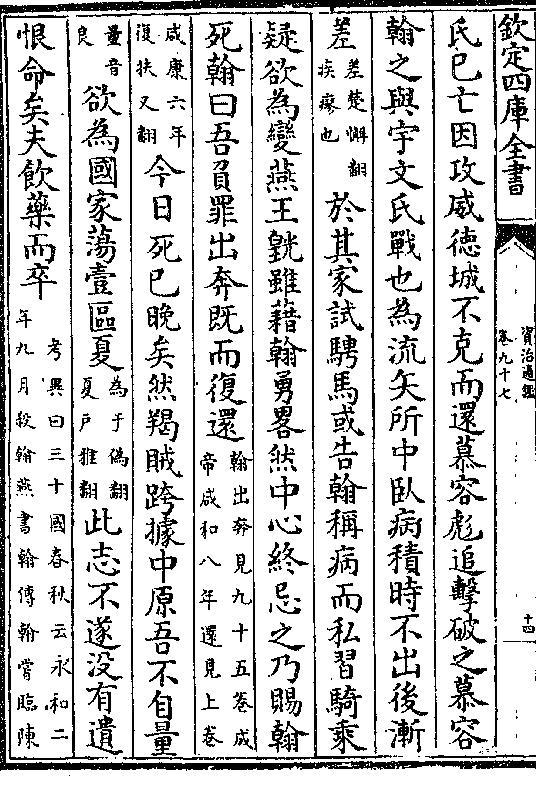 欽定四庫全書
資治通鑑
卷九十七
十四
氏已亡因攻威德城不克而還慕容彪追擊破之慕容
翰之與宇文氏戰也為流矢所中臥病積時不出後漸
差差楚懈翻疾瘳也於其家試騁馬或告翰稱病而私習騎乘
疑欲為變燕王皝雖藉翰勇畧然中心終忌之乃賜翰
死翰曰吾負罪出奔既而復還翰出奔見九十五卷成帝咸和八年還見上卷
咸康六年復扶又翻今日死已晚矣然羯賊跨據中原吾不自量
量音良欲為國家蕩壹區夏為于偽翻夏戶雅翻此志不遂没有遺
恨命矣夫飲藥而卒考異曰三十國春秋云永和二年九月殺翰燕書翰傳翰嘗臨陳